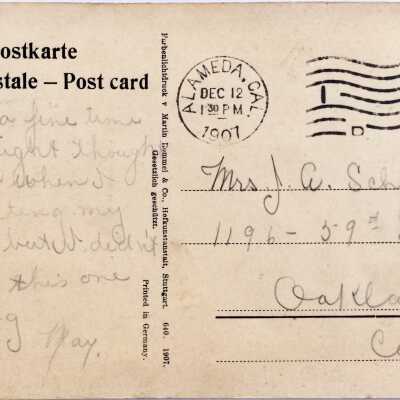 ostkarte
stale – Post card
a fine time
ight though
when I
ting my
but I didn't
this one
g
May.
Farbenlichtdruck v. Martin Rommel & Co., Hofkunstanstalt, Stuttgart. 640. 1907.
Gesetzlich geschützt.
Printed in Germany.
ALAMEDA, CAL.
DEC 12
1 30 PM
1907
I
D
Mrs J. A. Sch
1196 - 59th
Oakla
C